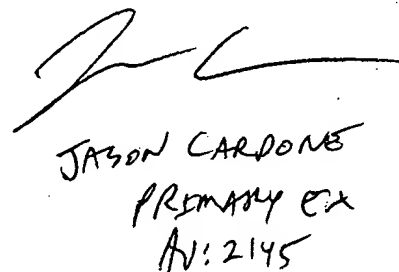 JASON CARDONE
PRIMARY EX
AU: 2145